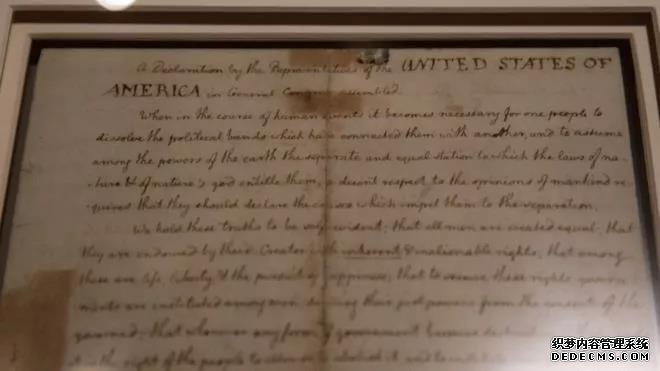 A Declaration by the Representatives of the UNITED STATES OF
AMERICA in General Congress assembled.
When in the course of human events it becomes necessary for one people to
dissolve the political bands which have connected them with another, and to assume
among the powers of the earth the separate and equal station to which the laws of na-
ture & of nature's god entitle them, a decent respect to the opinions of mankind re-
quires that they should declare the causes which impel them to the separation.
We hold these truths to be self evident; that all men are created equal; that
they are endowed by their Creator with inherent & inalienable rights; that among
these are life, liberty, & the pursuit of happiness; that to secure these rights, govern-
ments are instituted among men, deriving their just powers from the consent of the
governed; that whenever any form of government becomes
it is the right of the people to alter or to abolish it, and to institute
织梦内容管理系统
DEDECMS.COM